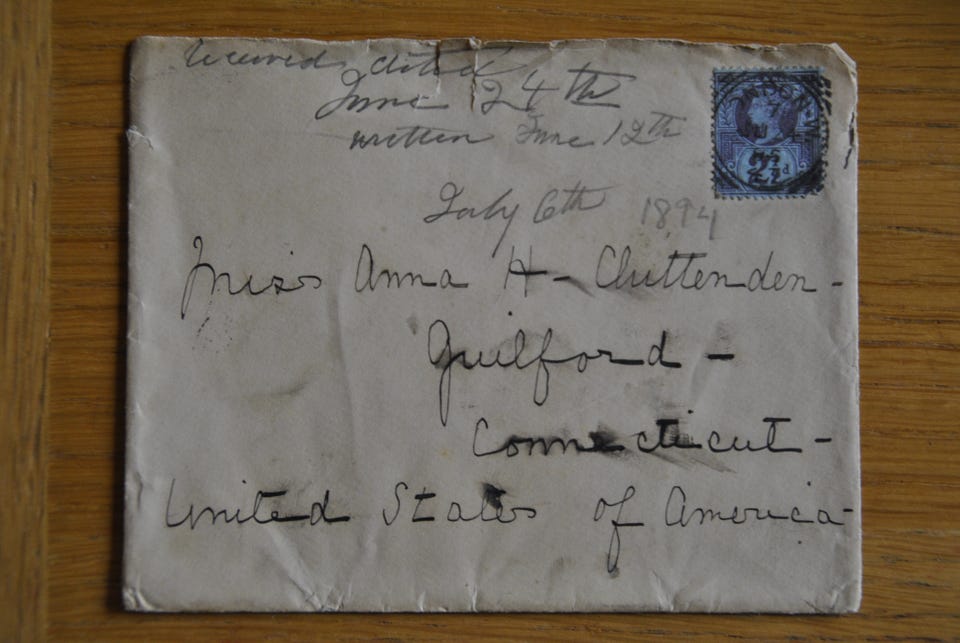 received dated
June 24th
written June 12th
July 6th 1894
Miss Anna H - Chittenden -
Guilford -
Connecticut -
United States of America -
2½d